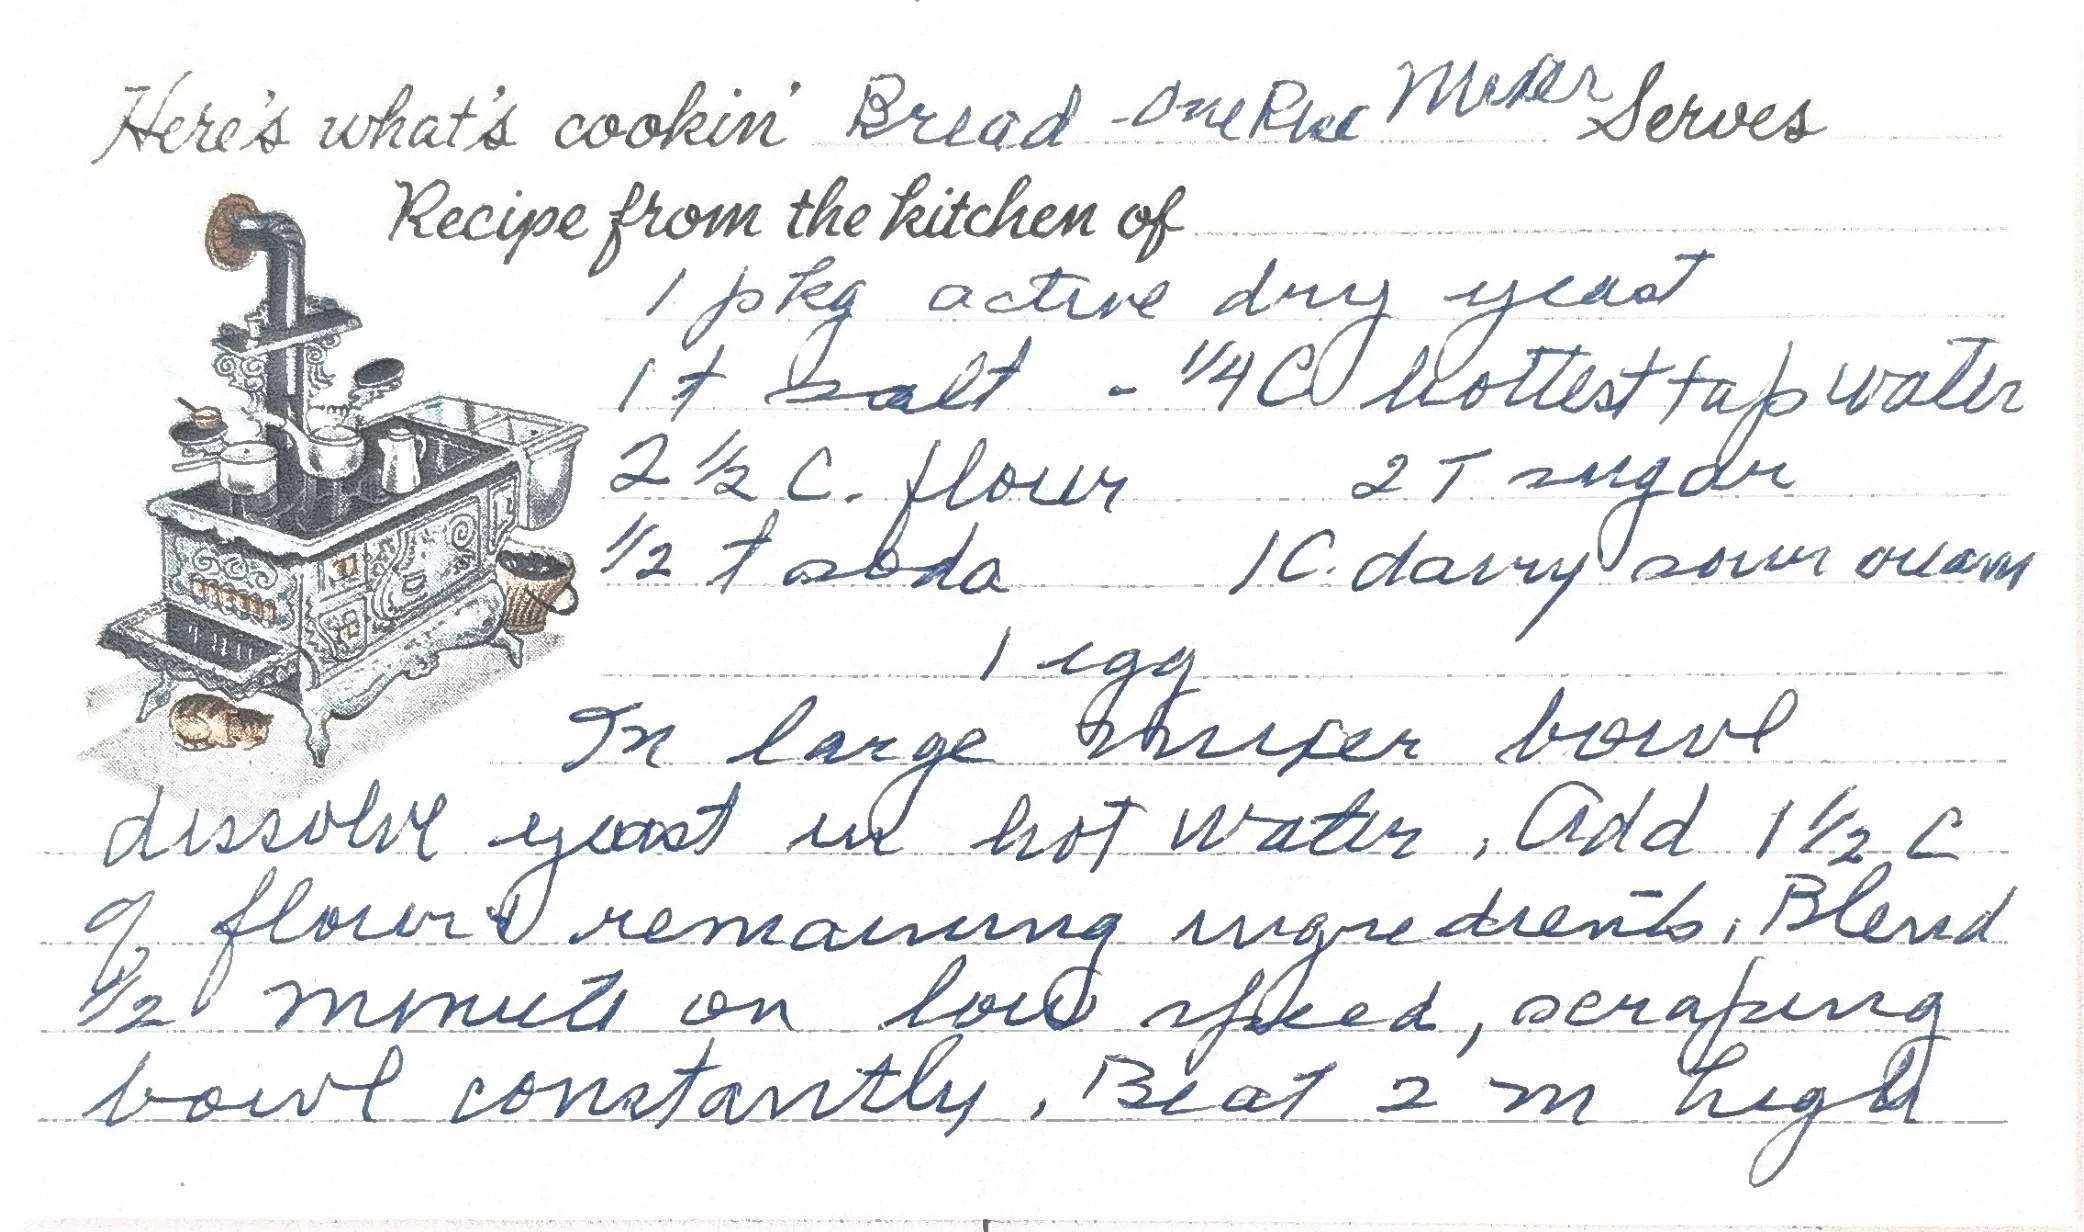 Here's what's cookin' Bread - One Rise Mixer Serves
Recipe from the kitchen of
1 pkg active dry yeast
1 t salt - 1/4 C hottest tap water
2 1/2 C. flour 2 T sugar
1/2 t soda 1 C. dairy sour cream
1 egg
In large mixer bowl
dissolve yeast in hot water. Add 1 1/2 C
of flour & remaining ingredients. Blend
1/2 minute on low speed, scraping
bowl constantly. Beat 2 m high